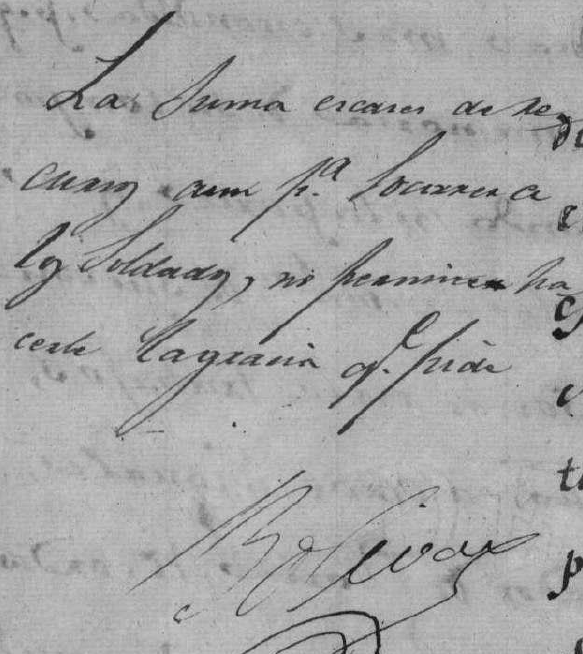 La suma escases de re
cursos aun p.ª socorrer a
los Soldados, no permite ha
cerle la gracia q.e pide
Bolivar